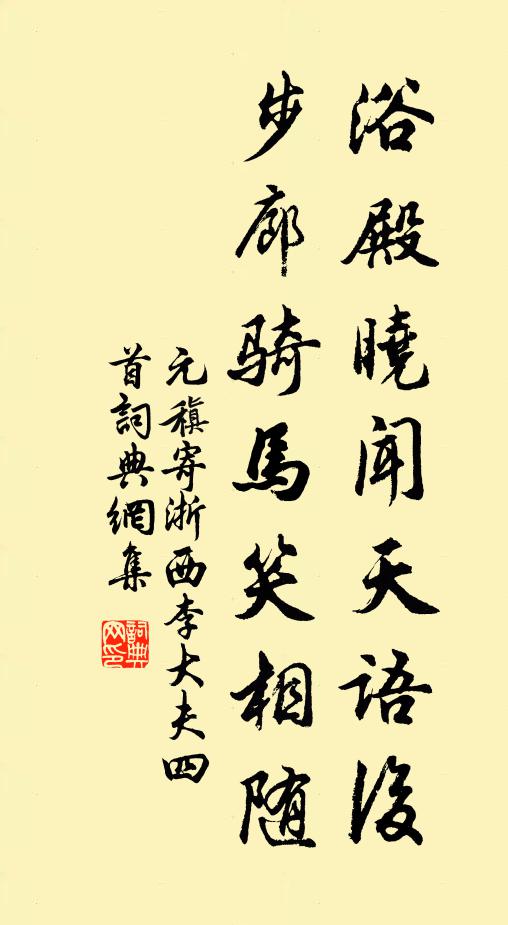 浴殿曉聞天語後
步廊騎馬笑相随
元稹寄浙西李大夫四
首詞典網集
詞典
网印